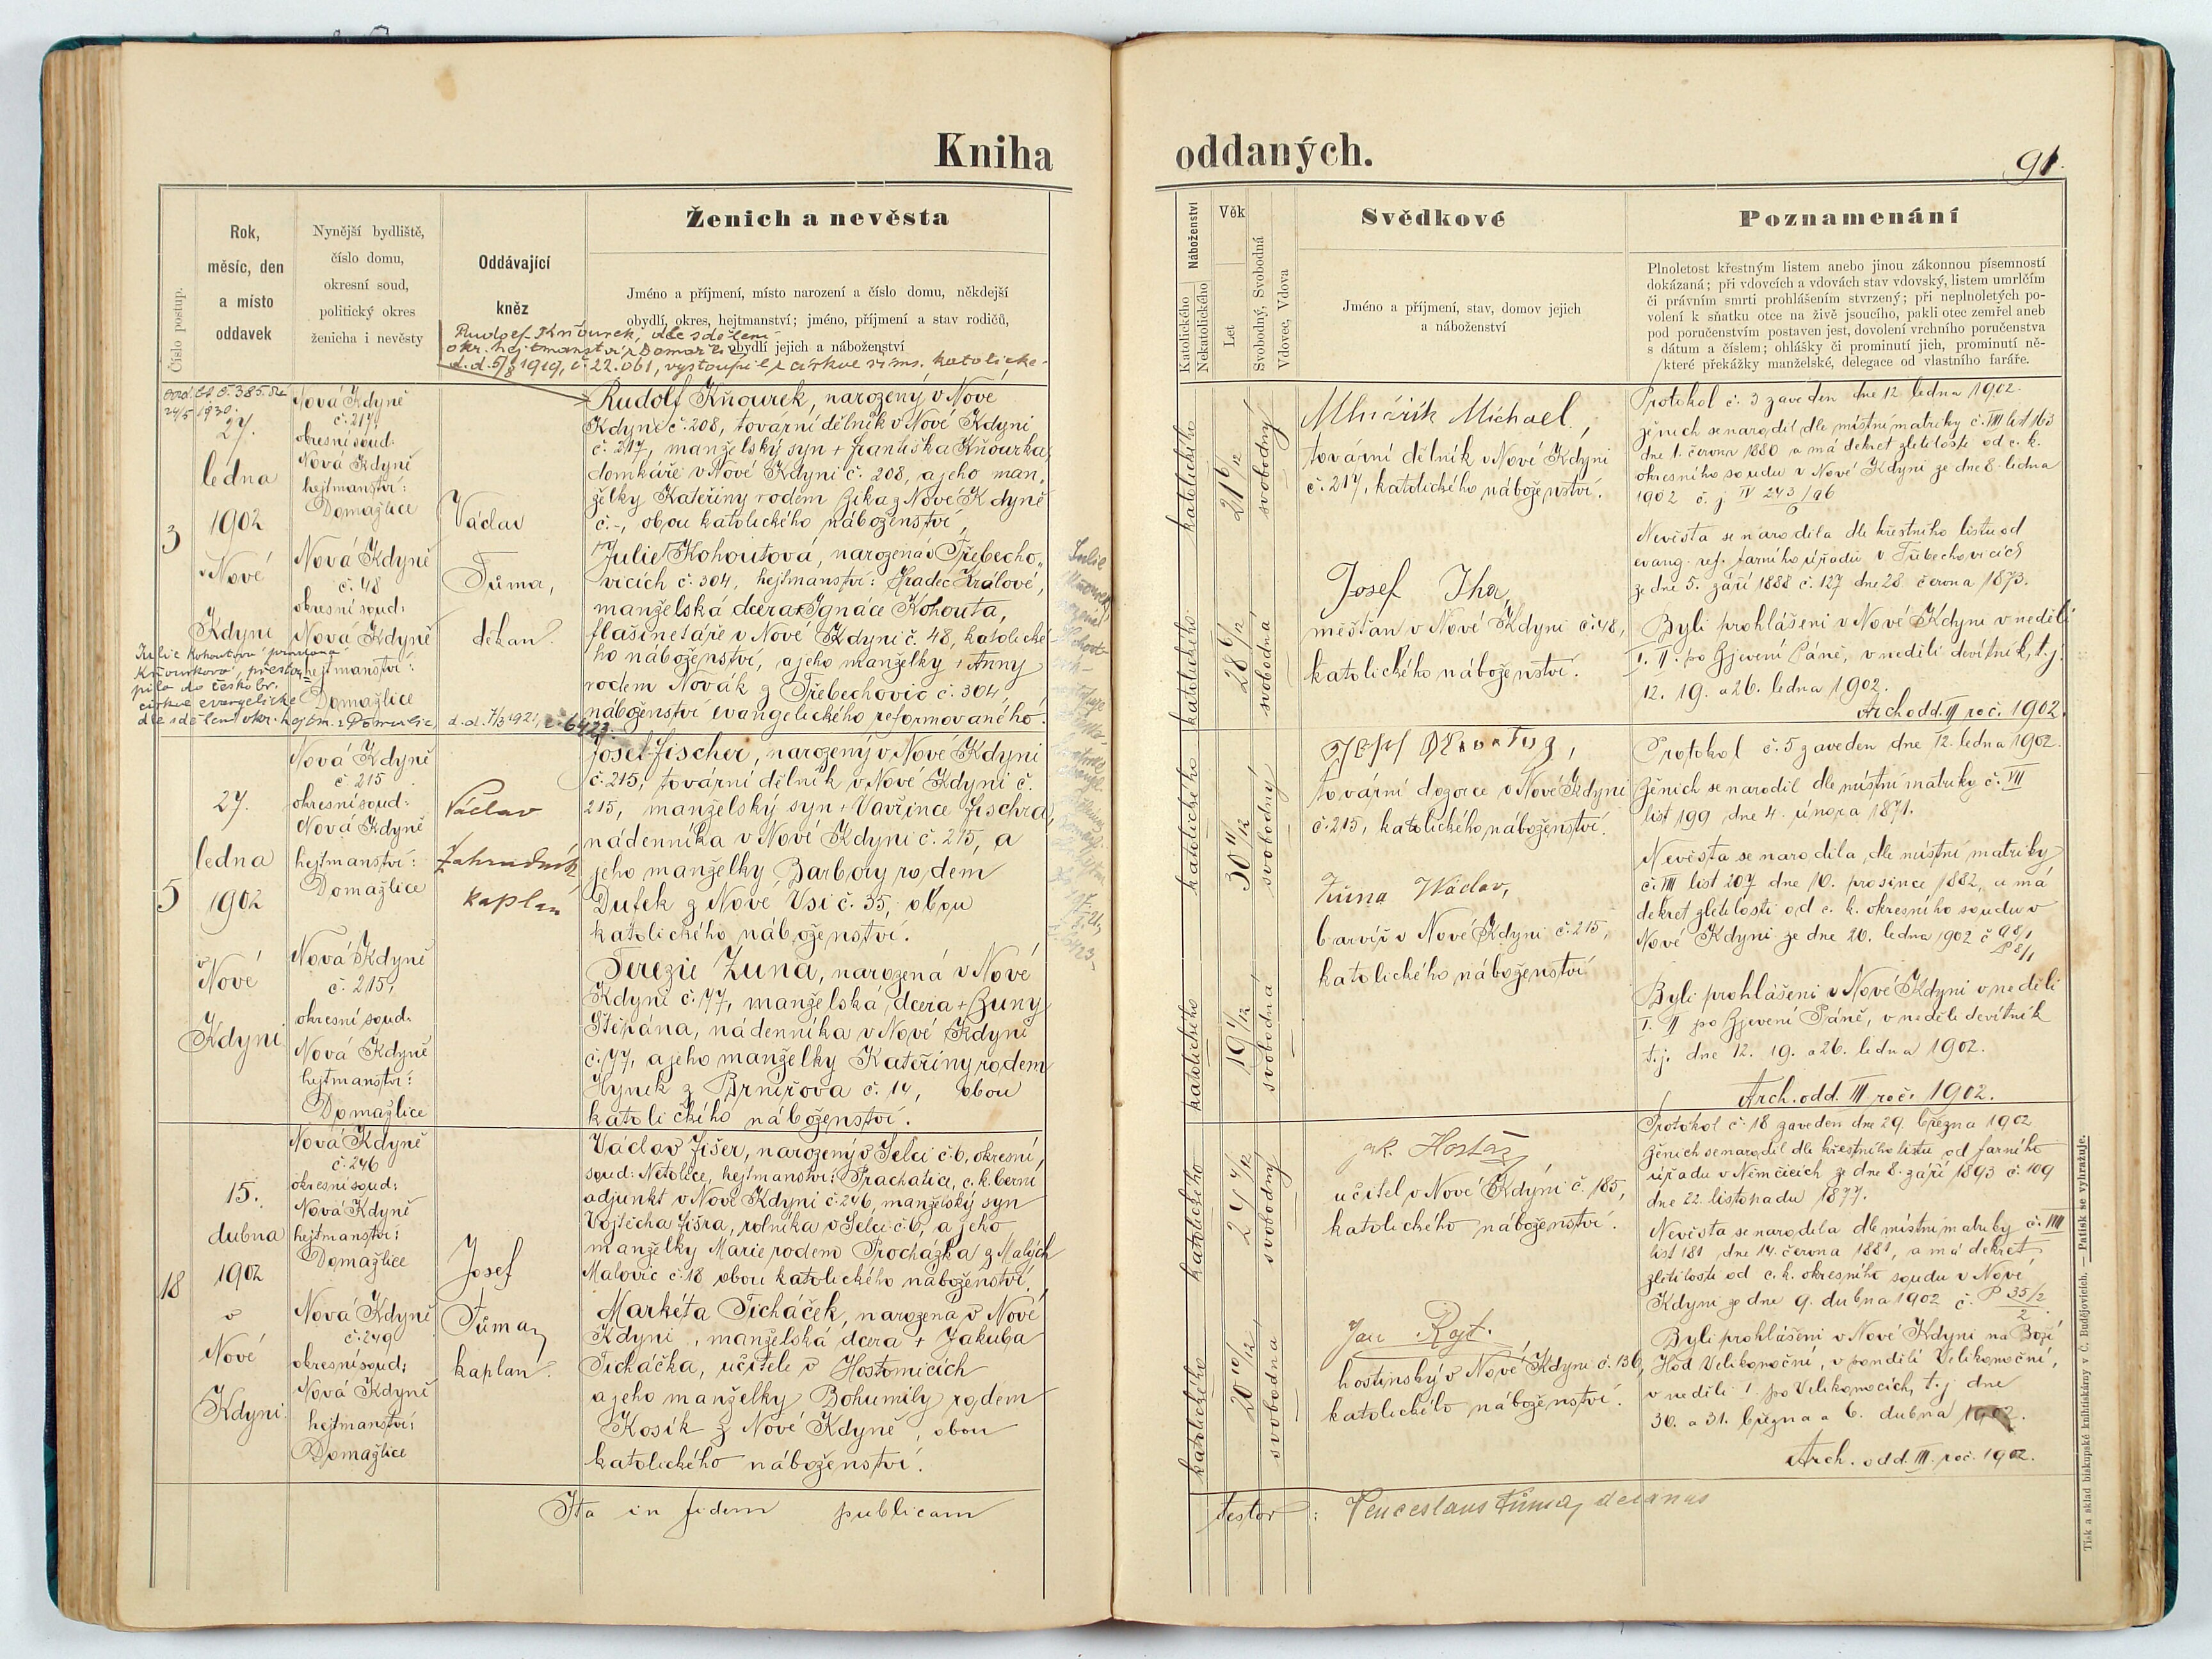 Kniha
oddaných.
91.
Číslo postup.
Rok,
měsíc, den
a místo
oddavek
Nynější bydliště,
číslo domu,
okresní soud,
politický okres
ženicha i nevěsty
Oddávající
kněz
Ženich a nevěsta
Jméno a příjmení, místo narození a číslo domu, někdejší
obydlí, okres, hejtmanství; jméno, příjmení a stav rodičů,
obydlí jejich a náboženství
Rudolf Kňourek, dle sdělení
okr. hejtmanství z Domažlic
d.d. 5/8 1919, č. 22.061, vystoupil z církve řím. katolické.
Náboženství
Katolického
Nekatolického
Věk
Let
Svobodný, Svobodná
Vdovec, Vdova
Svědkové
Jméno a příjmení, stav, domov jejich
a náboženství
Poznamenání
Plnoletost křestným listem anebo jinou zákonnou písemností
dokázaná; při vdovcích a vdovách stav vdovský, listem umrlčím
či právním smrti prohlášením stvrzený; při neplnoletých po-
volení k sňatku otce na živě jsoucího, pakli otec zemřel aneb
pod poručenstvím postaven jest, dovolení vrchního poručenstva
s dátum a číslem; ohlášky či prominutí jich, prominutí ně-
které překážky manželské, delegace od vlastního faráře.
3
č. 385.
24/5 1930.
27.
ledna
1902
v Nové
Kdyni
Nová Kdyně
č. 217,
okresní soud:
Nová Kdyně
hejtmanství:
Domažlice
Nová Kdyně
č. 48
okresní soud:
Nová Kdyně
hejtmanství:
Domažlice
Julie Kohoutová provdaná
Kňourková, přestou-
pila do česko br.
církve evangelické
dle sdělení okr. hejtm. z Domažlic d.d. 7/3 1921, č. 6423.
Václav
Tůma,
děkan.
Rudolf Kňourek, narozený v Nové
Kdyni č. 208, tovární dělník v Nové Kdyni
č. 217, manželský syn + Františka Kňourka,
domkáře v Nové Kdyni č. 208, a jeho man-
želky Kateřiny rodem Zika z Nové Kdyně
č. -, obou katolického náboženství,
Julie Kohoutová, narozená v Třebecho-
vicích č. 304, hejtmanství: Hradec Králové,
manželská dcera Ignáce Kohouta,
flašinetáře v Nové Kdyni č. 48, katolické
ho náboženství, a jeho manželky + Anny
rodem Novák z Třebechovic č. 304,
náboženství evangelického reformovaného.
katolického
katolického
21 6/12
28 6/12
svobodný
svobodná
Mlnářík Michael,
tovární dělník v Nové Kdyni
č. 217, katolického náboženství.
Josef Iha,
měšťan v Nové Kdyni č. 48,
katolického náboženství.
Protokol č. 3 zaveden dne 12. ledna 1902.
Ženich se narodil dle místní matriky č. VIII list 163
dne 1. června 1880 a má dekret zletilosti od c. k.
okresního soudu v Nové Kdyni ze dne 8. ledna
1902 č. j. IV 243/96
6
Nevěsta se narodila dle křestního listu od
evang. ref. farního úřadu v Třebechovicích
ze dne 5. září 1888 č. 127 dne 28 června 1873.
Byli prohlášeni v Nové Kdyni v neděli
I. II. po Zjevení Páně, v neděli devítník, t.j.
12. 19. a 26. ledna 1902.
Arch odd. III roč. 1902.
5
27.
ledna
1902
v
Nové
Kdyni
Nová Kdyně
č. 215
okresní soud:
Nová Kdyně
hejtmanství:
Domažlice
Nová Kdyně
č. 215,
okresní soud:
Nová Kdyně
hejtmanství:
Domažlice
Václav
Zahradník
kaplan
Josef Fischer, narozený v Nové Kdyni
č. 215, tovární dělník v Nové Kdyni č.
215, manželský syn + Vavřince Fischra,
nádenníka v Nové Kdyni č. 215, a
jeho manželky Barbory rodem
Dufek z Nové Vsi č. 35, obou
katolického náboženství.
Terezie Zuna, narozená v Nové
Kdyni č. 77, manželská dcera + Zuny
Štěpána, nádenníka v Nové Kdyně
č. 77, a jeho manželky Kateřiny rodem
Hynek z Brnířova č. 14, obou
katolického náboženství.
katolického
katolického
30 11/12
19 1/12
svobodný
svobodná
Josef
tovární dozorce v Nové Kdyni
č. 215, katolického náboženství.
Zuna Václav,
barvíř v Nové Kdyni č. 215,
katolického náboženství
Protokol č. 5 zaveden dne 12. ledna 1902.
Ženich se narodil dle místní matriky č. VII
list 199 dne 4. února 1871.
Nevěsta se narodila dle místní matriky
č. VIII list 207 dne 10. prosince 1882, a má
dekret zletilosti od c. k. okresního soudu v
Nové Kdyni ze dne 20. ledna 1902 č.
P 8/1
Byli prohlášeni v Nové Kdyni v neděli
I. II po Zjevení Páně, v neděle devítník
t.j. dne 12. 19. a 26. ledna 1902.
Arch. odd. III roč. 1902.
18
15.
dubna
1902
v
Nové
Kdyni
Nová Kdyně
č. 246
okresní soud:
Nová Kdyně
hejtmanství:
Domažlice
Nová Kdyně
č. 249
okresní soud:
Nová Kdyně
hejtmanství:
Domažlice
Josef
Tůma,
kaplan.
Václav Fišer, narozený v Selci č. 6, okresní
soud: Netolice, hejtmanství: Prachatice, c. k. berní
adjunkt v Nové Kdyni č. 246, manželský syn
Vojtěcha Fišra, rolníka v Selci č. 6, a jeho
manželky Marie rodem Procházka z Malých
Malovic č. 18 obou katolického náboženství.
Markéta Ticháček, narozená v Nové
Kdyni, manželská dcera + Jakuba
Ticháčka, učitele v Hostomicích
a jeho manželky Bohumily rodem
Kosík z Nové Kdyně, obou
katolického náboženství.
katolického
katolického
24 4/12
20 10/12
svobodný
svobodna
Hostaš
učitel v Nové Kdyni č. 185,
katolického náboženství.
Jan Rojt.
hostinský v Nové Kdyni č. 136,
katolického náboženství.
Protokol č. 18 zaveden dne 29. března 1902
Ženich se narodil dle křestního listu od farního
úřadu v Němčicích ze dne 8. září 1893 č. 109
dne 22. listopadu 1877.
Nevěsta se narodila dle místní matriky č. VIII
list 181 dne 14. června 1881, a má dekret
zletilosti od c. k. okresního soudu v Nové
Kdyni ze dne 9. dubna 1902 č. P 35/2
2
Byli prohlášeni v Nové Kdyni na Boží
Hod Velikonoční, v pondělí Velikonoční,
v neděli 1. po Velikonocích, t.j. dne
30. a 31. března a 6. dubna 1902.
Arch. odd. III. roč. 1902.
Ita in fidem publicam
testor: Venceslaus Tůma, decanus
Tisk a sklad biskupské knihtiskárny v Č. Budějovicích. — Patisk se vyhražuje.